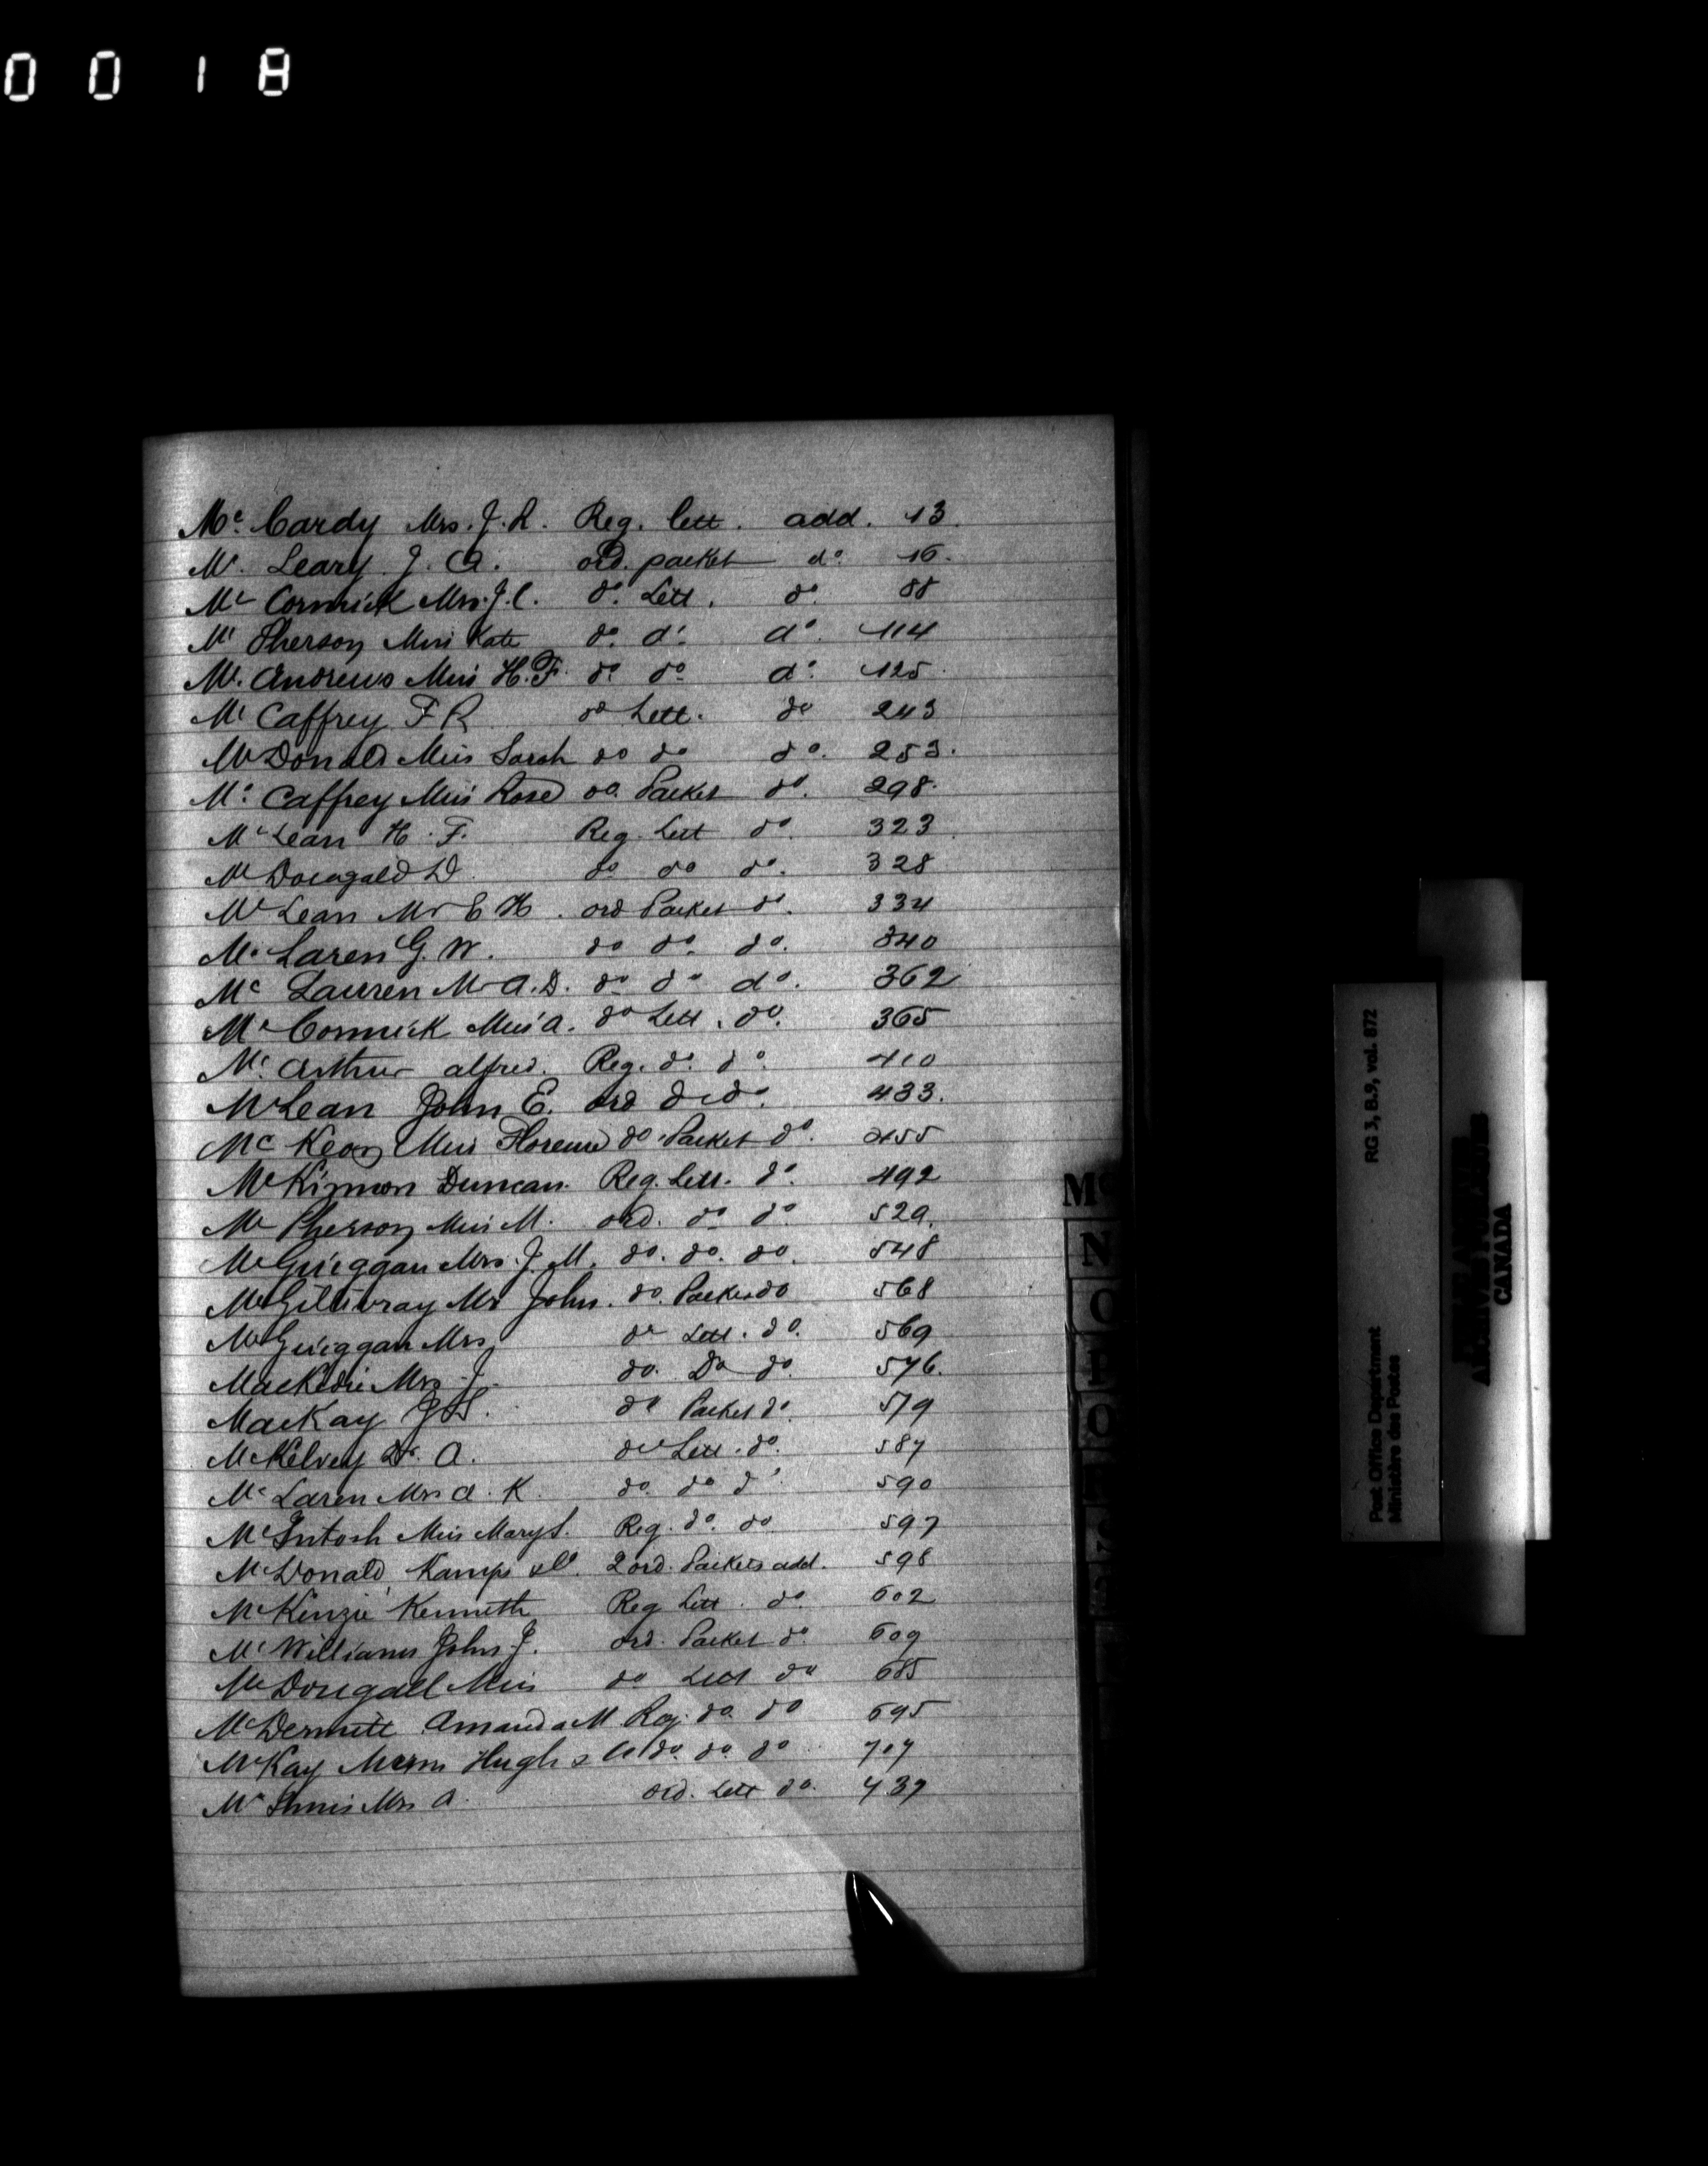 0018
Mc Cardy Mrs. J. R. Reg. lett. add. 13.
Mc. Leary J. A. ord. packet do. 16.
Mc Cormick Mrs. J. C. do. Lett. do. 88
Mc Pherson Miss Kate do. do. do. 114
Mc. Andrews Miss H. F. do do do. 125.
Mc Caffrey F R do Lett. do 243
McDonald Miss Sarah do do do. 253.
Mc. Caffrey Miss Rose do. Packet do. 298.
McLean H. F. Reg. Lett do. 323.
McDougald D. do do do. 328
McLean Mr E H. ord Packet do. 334
Mc. Laren G. W. do do. do. 340
Mc Lauren Mr A. D. do do do. 362
Mc Cormick Miss A. do Lett. do. 365
Mc. Arthur Alfred. Reg. do. do. 410
McLean John E. ord do do. 433.
Mc Keon Miss Florence do. Packet do. 455
McKinnon Duncan. Reg. Lett. do. 492
Mc Pherson Miss M. ord. do do. 529.
McGuiggan Mrs. J. M. do. do. do. 548
McGillivray Mr John. do. Packet do 568
McGuiggan Mrs do Lett. do. 569
MacKedie Mrs J. do. Do do. 576.
MacKay J S. do Packet do. 579
McKelvey Dr. A. do Lett. do. 587
Mc Laren Mrs A. K. do. do do 590
McIntosh Miss Mary S. Reg. do. do 597
McDonald, Kamps & Co. 2 ord. Packets add. 598
McKenzie Kenneth Reg Lett. do. 602
Mc Williams John J. ord. Packet do. 609
McDougall Miss do Lett do 685
McDermitt Amanda M. Reg. do. do 695
McKay Messrs Hugh & Co do. do. do 707
Mc Innis Mrs A. ord. Lett do. 737
Mc
N
O
RG 3, B.9, vol. 872
Post Office Department
Ministère des Postes
CANADA